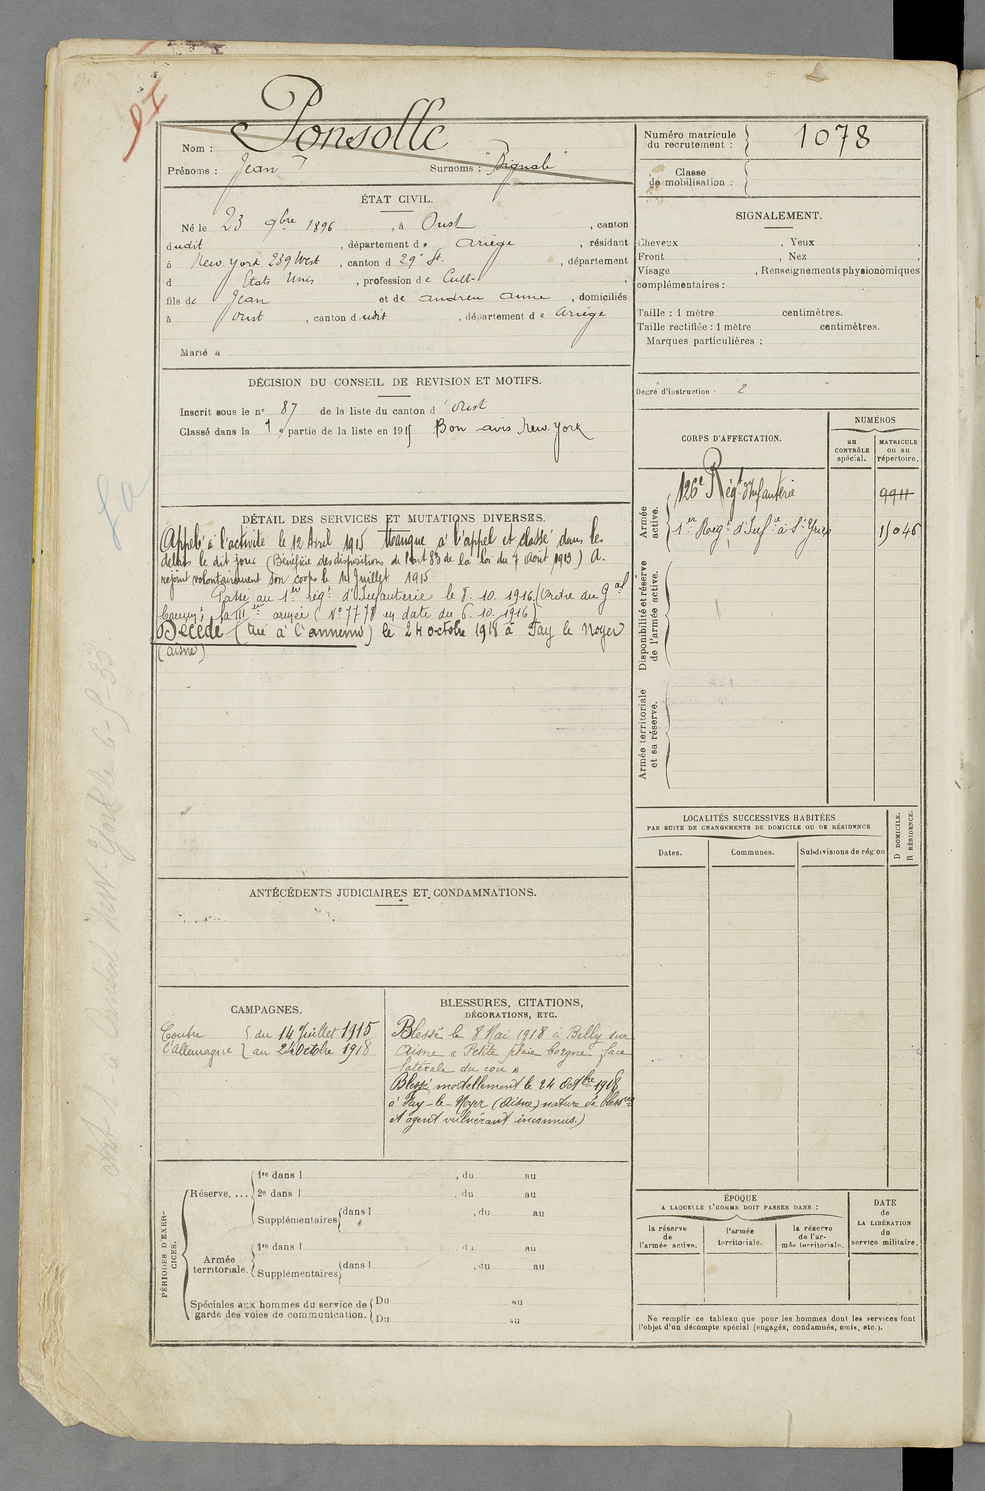 DI
Nom : Ponsolle
Prénoms : Jean
Surnoms : "Pignob"
Numéro matricule du recrutement : 1078
Classe de mobilisation :
ÉTAT CIVIL.
Né le 23 9bre 1896, à Oust, canton
dudit, département de Ariège, résidant
à New York 239 West, canton d 29e St., département
d Etats Unis, profession de Cult.
fils de Jean et de Andreu Anne, domiciliés
à Oust, canton dudit, département de Ariège
Marié à
SIGNALEMENT.
Cheveux , Yeux ,
Front , Nez ,
Visage , Renseignements physionomiques
complémentaires :
Taille : 1 mètre centimètres.
Taille rectifiée : 1 mètre centimètres.
Marques particulières :
Degré d'instruction : 2
DÉCISION DU CONSEIL DE REVISION ET MOTIFS.
Inscrit sous le n° 87 de la liste du canton d'Oust
Classé dans la 1e partie de la liste en 1915 Bon avis New-York
DÉTAIL DES SERVICES ET MUTATIONS DIVERSES.
Appelé à l'activité le 12 Avril 1915 Manque à l'appel et classé dans les
délais le dit jour (Bénéficie des dispositions de l'art 83 de la loi du 7 Août 1913) A
rejoint volontairement son corps le 14 Juillet 1915
Passé au 1er régt d'Infanterie le 8.10.1916 (Ordre du Gal
IIIe armée (N° 7778 en date du 6.10.1916)
Décédé (tué à l'ennemi) le 24 octobre 1918 à Fay le Noyer
(Aisne)
CORPS D'AFFECTATION.
NUMÉROS
au CONTRÔLE spécial.
MATRICULE ou au répertoire.
Armée active.
126e Régt d'Infanterie 9911
1er Regt d'Infie à St Yrieix 15046
Disponibilité et réserve de l'armée active.
Armée territoriale et sa réserve.
LOCALITÉS SUCCESSIVES HABITÉES
PAR SUITE DE CHANGEMENTS DE DOMICILE OU DE RÉSIDENCE
Dates.
Communes.
Subdivisions de région
D DOMICILE.
R RÉSIDENCE.
ANTÉCÉDENTS JUDICIAIRES ET CONDAMNATIONS.
CAMPAGNES.
Contre l'Allemagne
du 14 Juillet 1915
au 24 Octobre 1918
BLESSURES, CITATIONS,
DÉCORATIONS, ETC.
Blessé le 8 Mai 1918 à Billy sur
Aisne « Petite plaie borgne face
latérale du cou »
Blessé mortellement le 24 Octbre 1918
à Fay-le-Noyer (Aisne) nature de blessures
et agent vulnérant inconnus)
PÉRIODES D'EXERCICES.
Réserve....
1re dans l , du au
2e dans l , du au
Supplémentaires dans l , du au
Armée territoriale.
1re dans l du au
Supplémentaires dans l , du au
Spéciales aux hommes du service de garde des voies de communication.
Du au
Du au
ÉPOQUE
A LAQUELLE L'HOMME DOIT PASSER DANS :
la réserve de l'armée active.
l'armée territoriale.
la réserve de l'armée territoriale.
DATE de LA LIBÉRATION du service militaire.
Ne remplir ce tableau que pour les hommes dont les services font
l'objet d'un décompte spécial (engagés, condamnés, omis, etc.).